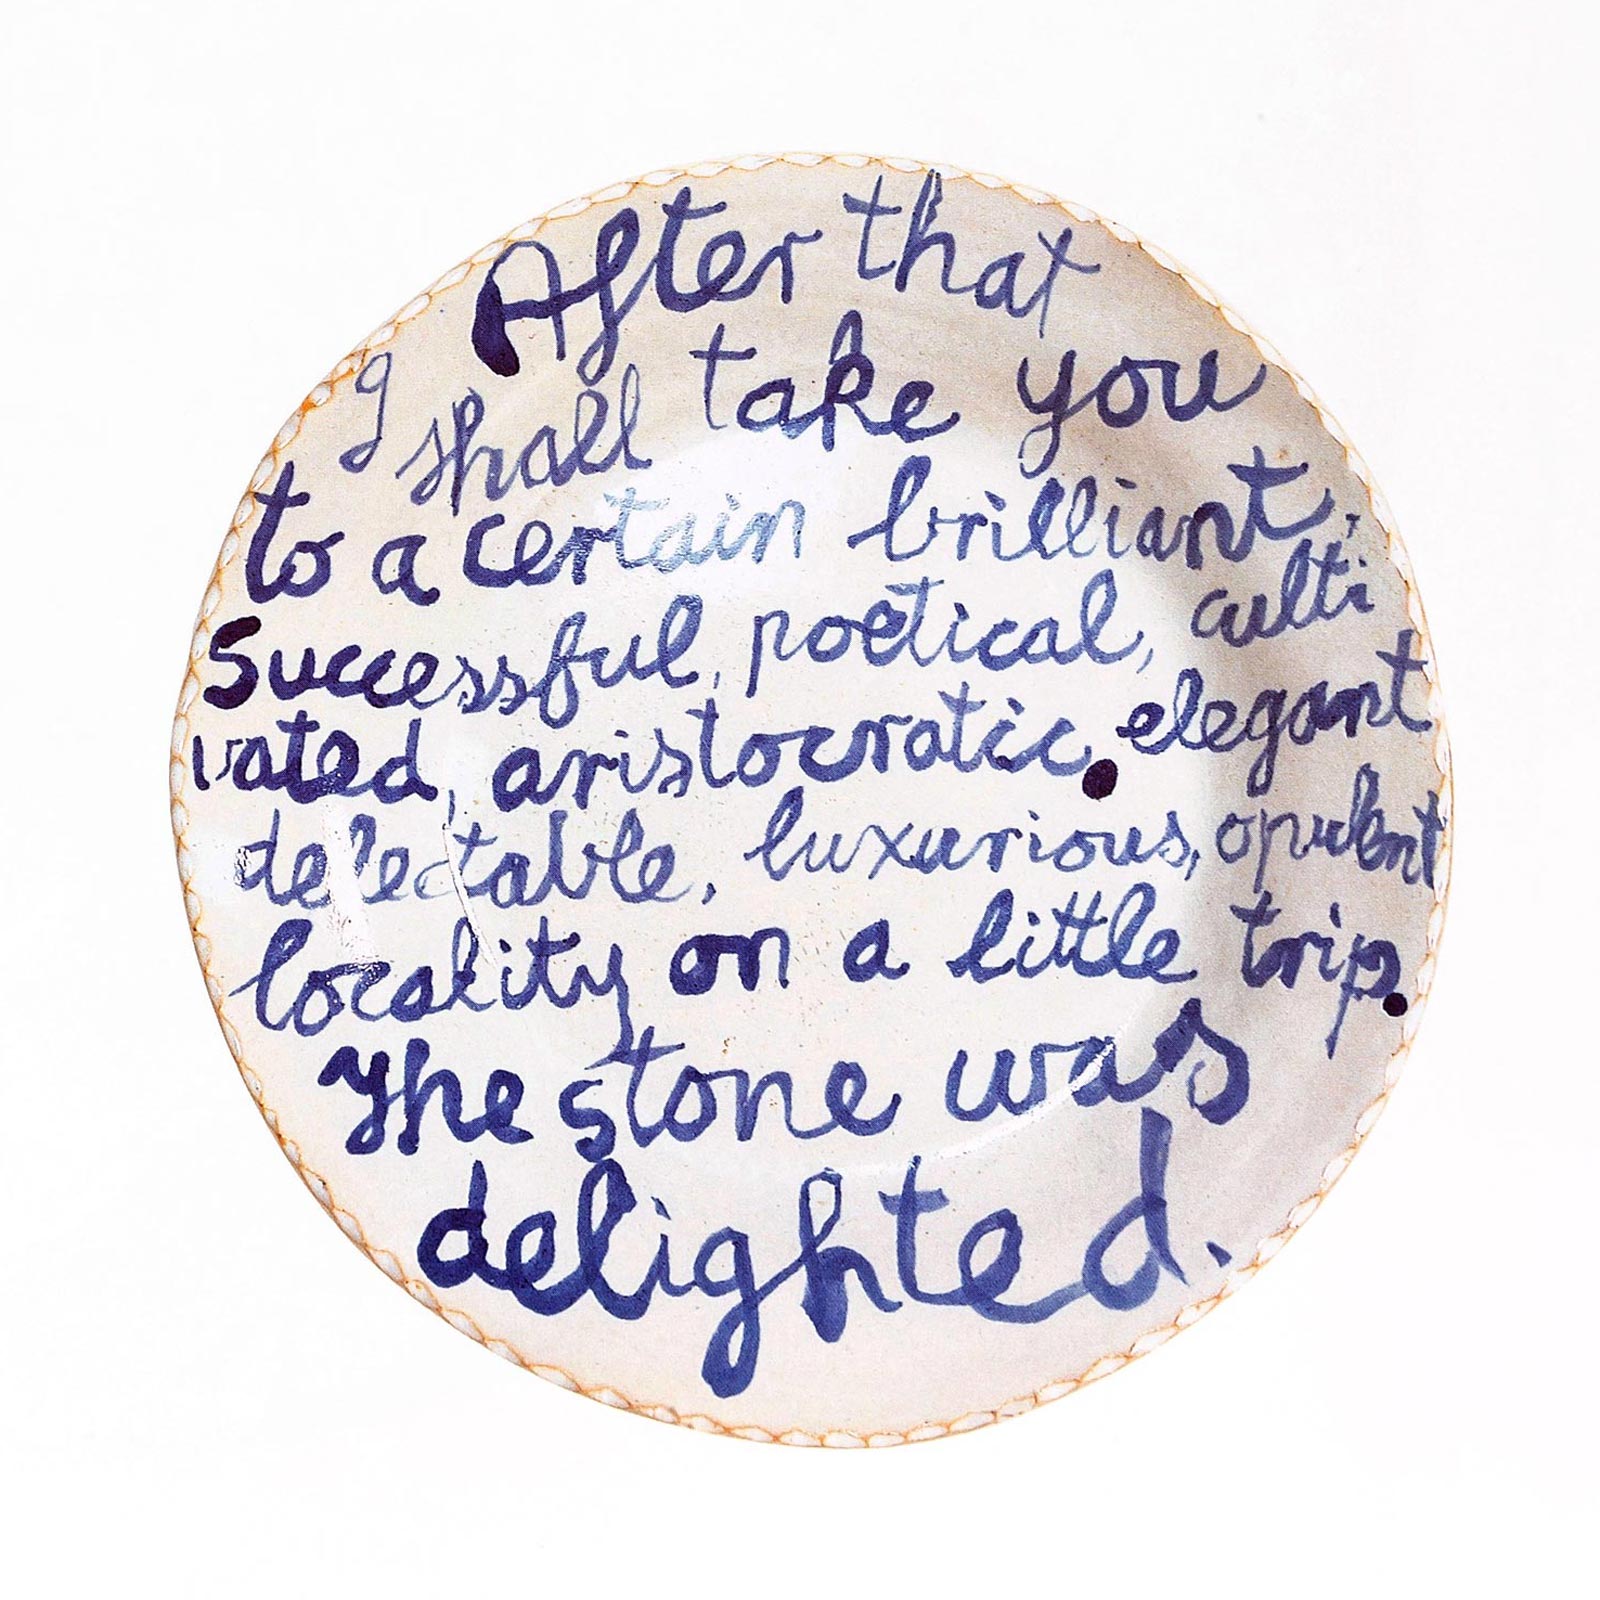 After that
I shall take you
to a certain brilliant,
Successful, poetical, culti
vated, aristocratic, elegant
delectable, luxurious, opulent
locality on a little trip.
The stone was
delighted.